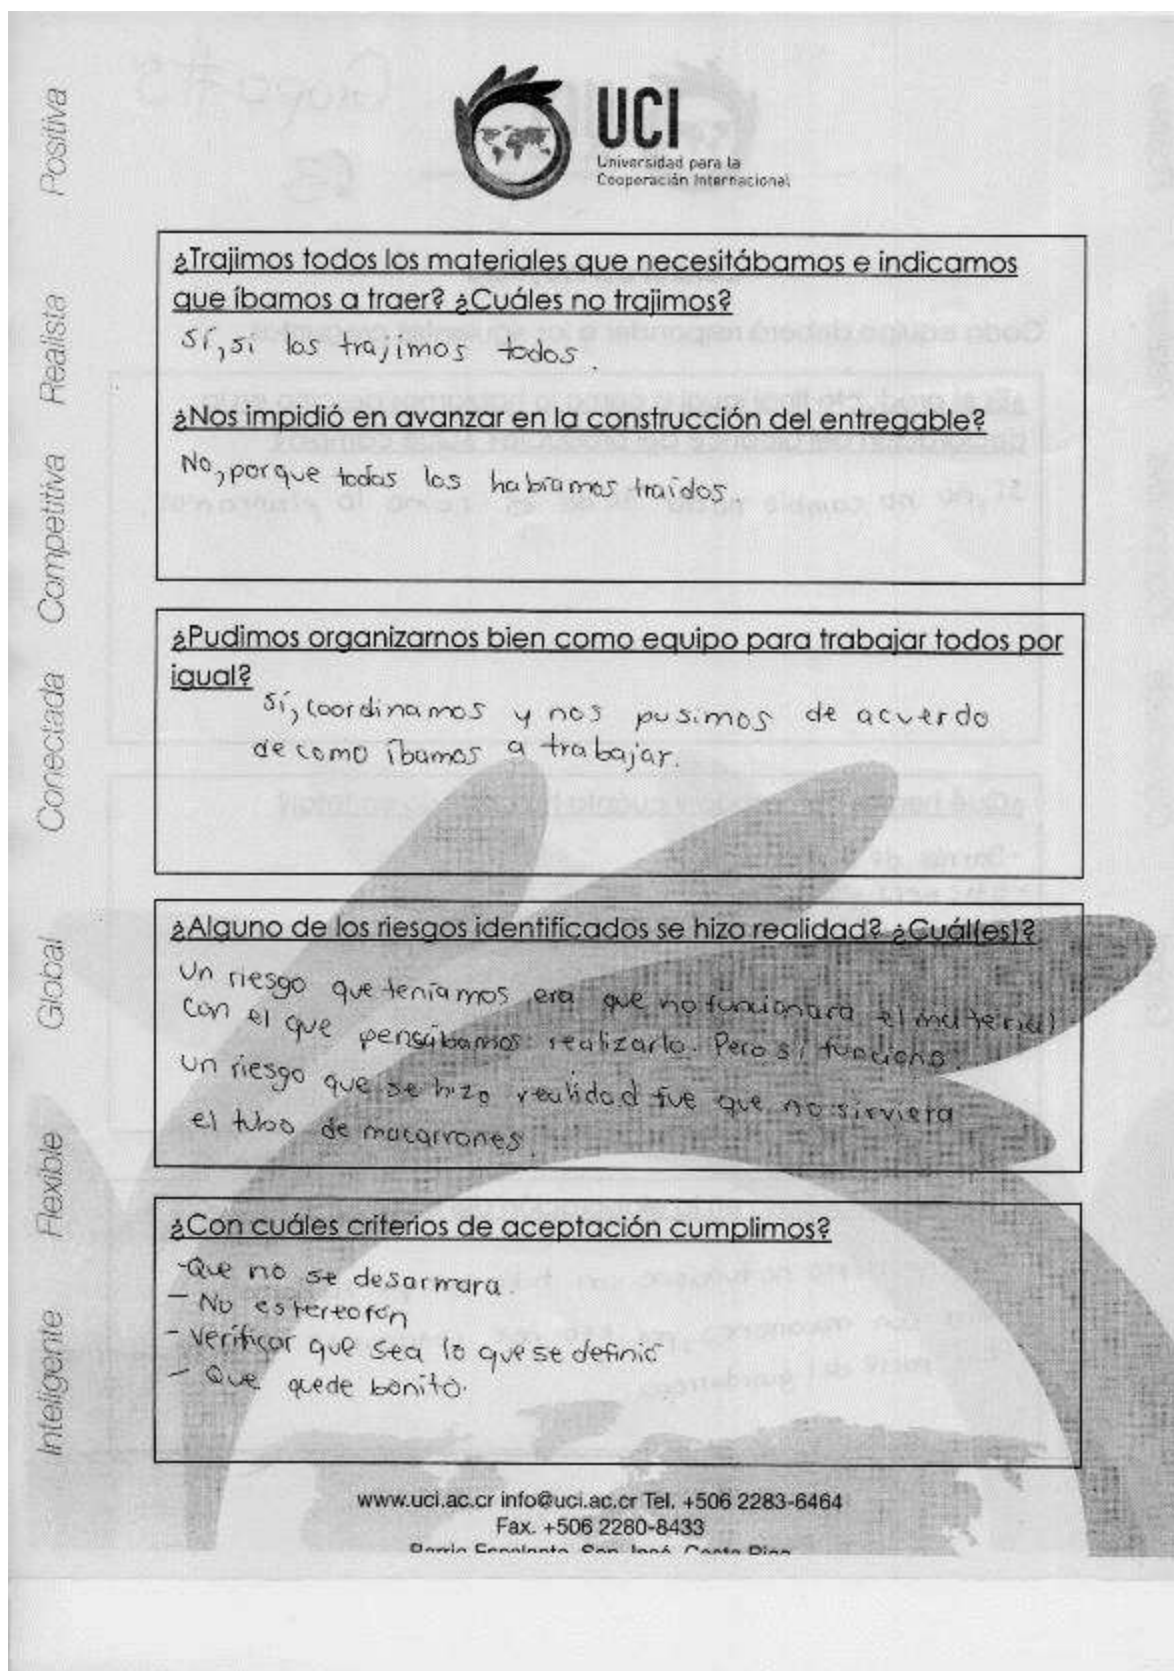 UCI
Universidad para la
Cooperación Internacional
Positiva
Realista
Competitiva
Conectada
Global
Flexible
Inteligente
¿Trajimos todos los materiales que necesitábamos e indicamos
que íbamos a traer? ¿Cuáles no trajimos?
Sí, si los trajimos todos.
¿Nos impidió en avanzar en la construcción del entregable?
No, porque todos los habíamos traídos.
¿Pudimos organizarnos bien como equipo para trabajar todos por
igual?
Sí, coordinamos y nos pusimos de acuerdo
de como íbamos a trabajar.
¿Alguno de los riesgos identificados se hizo realidad? ¿Cuál(es)?
Un riesgo que teníamos era que no funcionara el material
con el que pensábamos realizarlo. Pero sí funciono.
Un riesgo que se hizo realidad fue que no sirviera
el tubo de macarrones.
¿Con cuáles criterios de aceptación cumplimos?
-Que no se desarmara.
- No estereofón
- Verificar que sea lo que se definió
- Que quede bonito.
www.uci.ac.cr info@uci.ac.cr Tel. +506 2283-6464
Fax. +506 2280-8433
Barrio Escalante, San José, Costa Rica